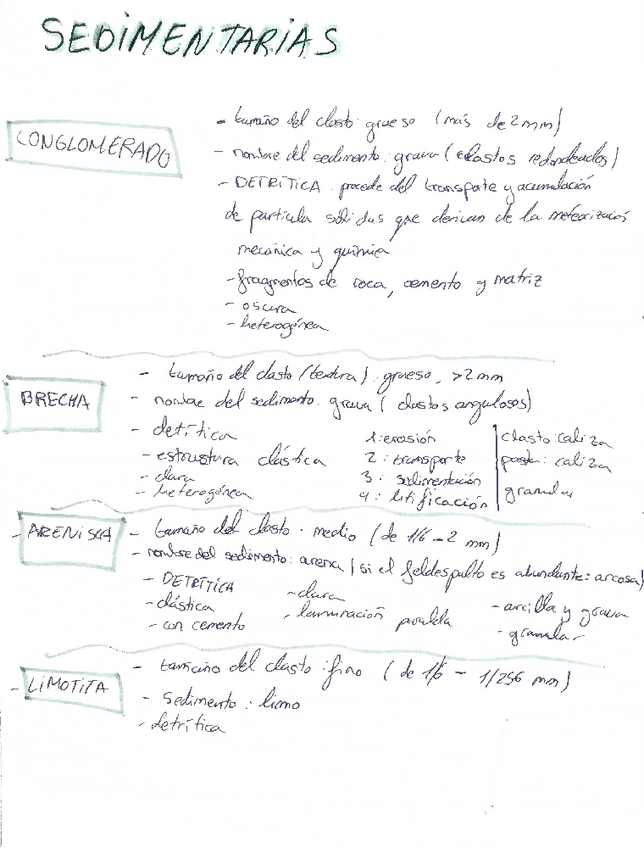 SEDIMENTARIAS
CONGLOMERADO
- tamaño del clasto: grueso (más de 2mm)
- nombre del sedimento: grava (clastos redondeados)
- DETRÍTICA: procede del transporte y acumulación
de partícula sólidas que derivan de la meteorización
mecánica y química
- fragmentos de roca, cemento y matriz
- oscura
- heterogénea
BRECHA
- tamaño del clasto (textura): grueso, >2mm
- nombre del sedimento: grava (clastos angulosos)
- detrítica
- estrustura clástica
- clara
- heterogénea
1: erosión
2: transporte
3: sedimentación
4: litificación
clasto: caliza
pasta: caliza
granular
- ARENISCA
- tamaño del clasto: medio (de 1/6 - 2 mm)
- nombre del sedimento: arena (si el feldespalto es abundante: arcosa)
- DETRÍTICA
- clástica
- con cemento
- clara
- laminación paralela
- arcilla y grava
- granular
- LIMOTITA
- tamaño del clasto: fino (de 1/6 - 1/256 mm)
- Sedimento: limo
- detrítica